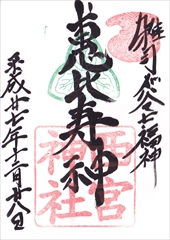 雑司が谷七福神
恵比寿神
西宮
神社
平成廿七年十二月廿八日